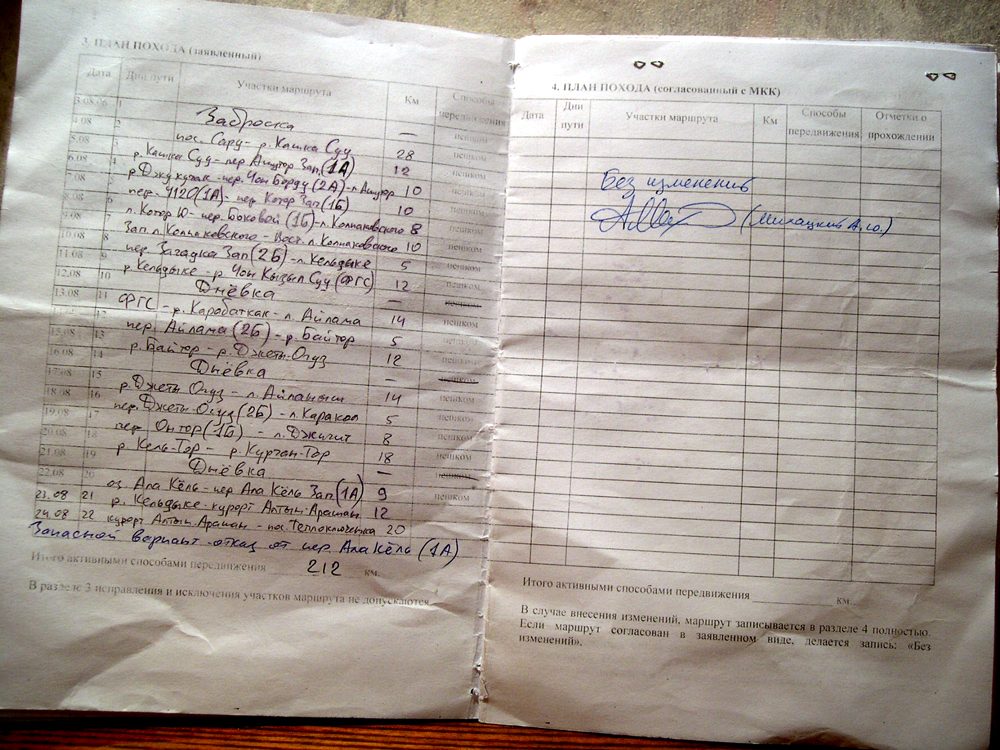 3. ПЛАН ПОХОДА (заявленный)
Дата Дни пути Участки маршрута Км Способы передвижения
3.08.06 1 Заброска — пешком
4.08 2 пос. Сару - р. Кашка Суу 28 пешком
5.08 3 р. Кашка Суу - пер Ашутор Зап. (1А) 12 пешком
6.08 4 р. Джукучак - пер. Чон Борду (2А) - л. Ашутор 10 пешком
7.08 5 пер. 4120 (1А) - пер Котор Зап (1Б) 10 пешком
8.08 6 л. Котор Ю - пер. Боковой (1Б) - л. Колпаковского 8 пешком
9.08 7 Зап. л. Колпаковского - Вост. л. Колпаковского 10 пешком
10.08 8 пер Загадка Зап (2Б) - л. Кельдыке 5 пешком
11.08 9 р. Кельдыке - р. Чон Кызыл Суу (ФГС) 12 пешком
12.08 10 Днёвка — пешком
13.08 11 ФГС - р. Карабаткак - л Айлама 14 пешком
12 пер. Айлама (2Б) - р. Байтор 5 пешком
15.08 13 р. Байтор - р. Джеты-Огуз 12 пешком
16.08 14 Днёвка — пешком
17.08 15 р. Джеты Огуз - л. Айланыш 14 пешком
18.08 16 пер. Джеты-Огуз (2Б) - л. Каракол 5 пешком
19.08 17 пер Онтор (1Б) - л. Джигит 8 пешком
20.08 18 р. Кель-Тор - р. Курган-Тор 18 пешком
21.08 19 Днёвка — пешком
22.08 20 оз. Ала Кёль - пер Ала Кёль Зап (1А) 9 пешком
23.08 21 р. Кельдыке - курорт Алтын-Арашан 12
24.08 22 курорт Алтын-Арашан - пос. Теплоключенка 20
Запасной вариант - отказ от пер. Ала Кёль (1А)
Итого активными способами передвижения 212 км.
В разделе 3 исправления и исключения участков маршрута не допускаются
4. ПЛАН ПОХОДА (согласованный с МКК)
Дата Дни пути Участки маршрута Км Способы передвижения Отметки о прохождении
Без изменений
(Милацкий А.Ю.)
Итого активными способами передвижения км.
В случае внесения изменений, маршрут записывается в разделе 4 полностью.
Если маршрут согласован в заявленном виде, делается запись: «Без
изменений».